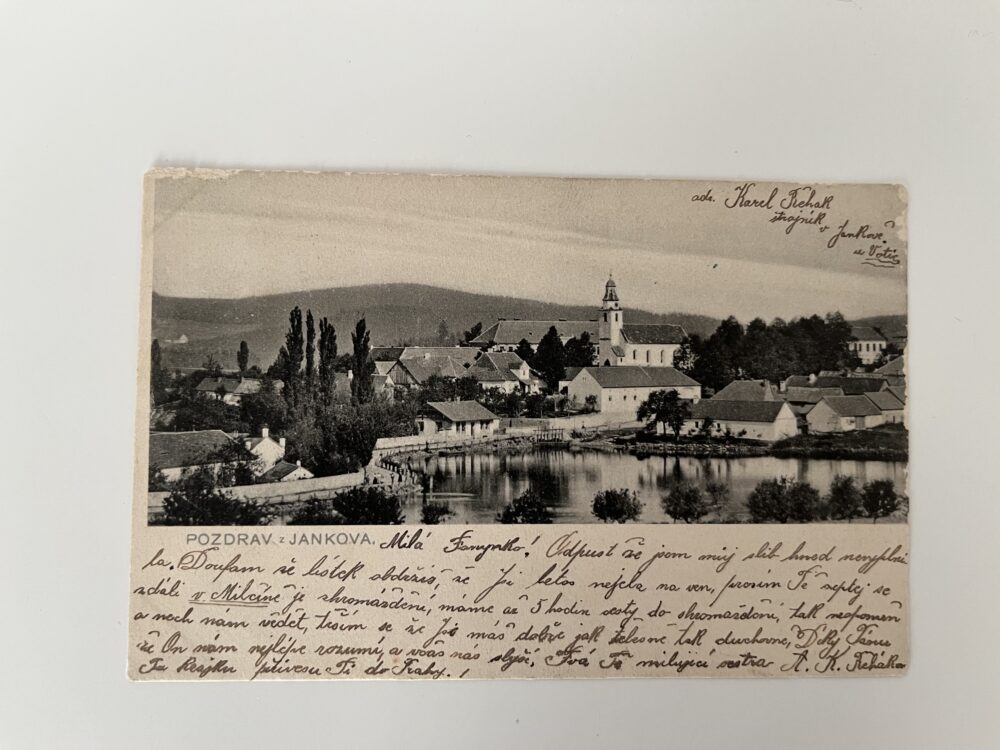 adr. Karel Řehák
strojník
v Jankově
u Votic
POZDRAV z JANKOVA. Milá Fanynko! Odpusť že jsem můj slib hned nevyplni
la. Doufám že lístek obdržíš, že Jsi letos nejela na ven, prosím Tě zeptej se
zdali v Milčíně je shromáždění, máme až 5 hodin cesty do shromáždění, tak nepomeň
a nech nám vědět, těším se že Jsi máš dobře jak tělesně tak duchovně, Díky Pánu
že On nám nejlépe rozumí, a včas nás slyší. Tvá Tě milující sestra A. K. Řeháka
Tu knížku přivezu Ti do Prahy.!